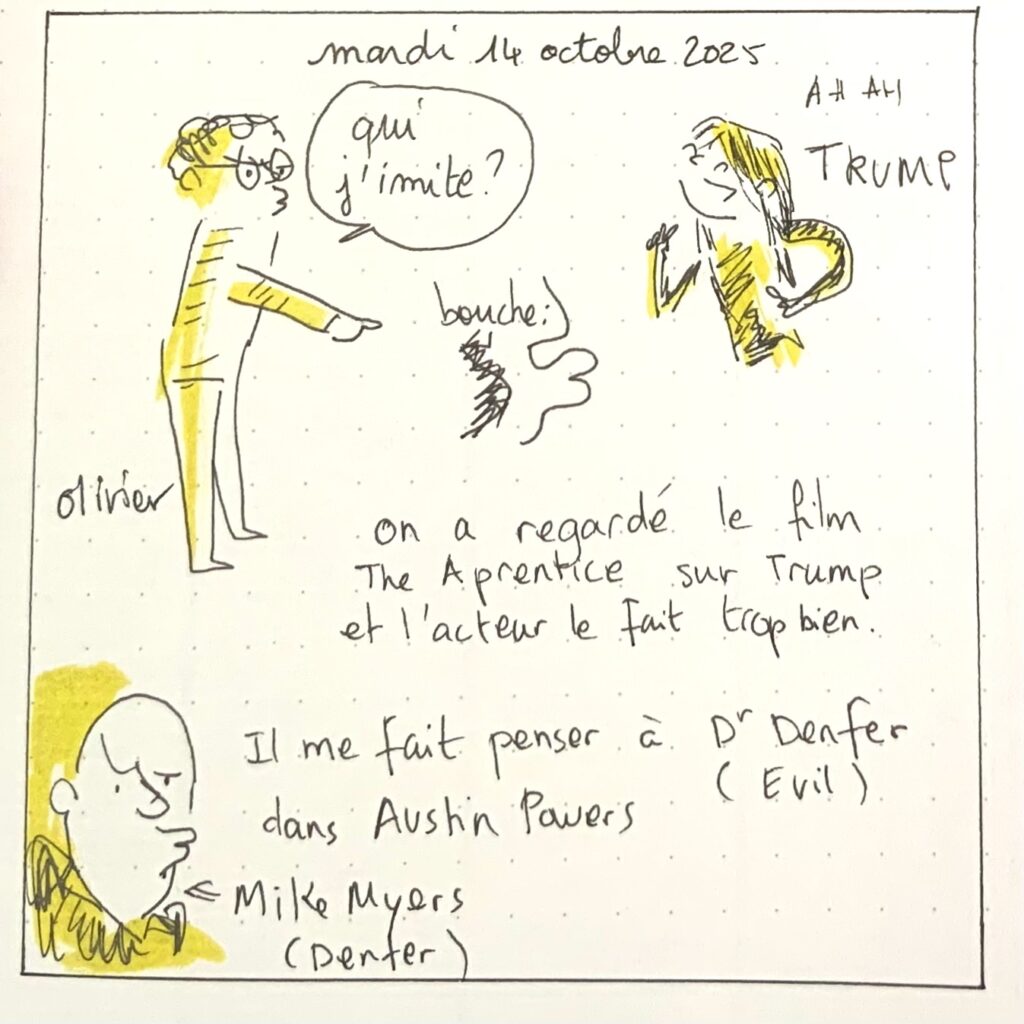 mardi 14 octobre 2025
qui
j'imite?
AH AH
TRUMP
bouche:
olivier
on a regardé le film
The Aprentice sur Trump
et l'acteur le fait trop bien.
Il me fait penser à Dr Denfer
(Evil)
dans Austin Powers
← Mike Myers
(Denfer)